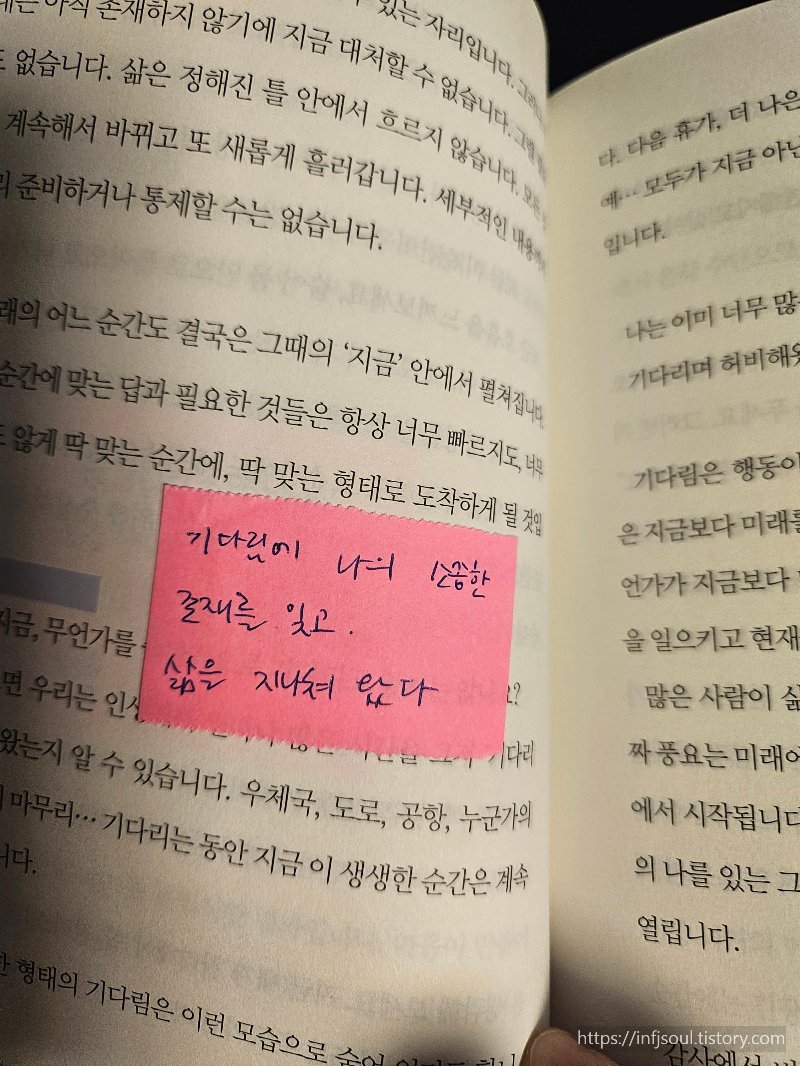 있는 자리입니다.
아직 존재하지 않기에 지금 대처할 수 없습니다. 그럴
없습니다. 삶은 정해진 틀 안에서 흐르지 않습니다. 모든
계속해서 바뀌고 또 새롭게 흘러갑니다. 세부적인 내용까지
준비하거나 통제할 수는 없습니다.
래의 어느 순간도 결국은 그때의 ‘지금’ 안에서 펼쳐집니다.
순간에 맞는 답과 필요한 것들은 항상 너무 빠르지도, 너무
않게 딱 맞는 순간에, 딱 맞는 형태로 도착하게 될 것입
기다림에 나의 소중한
존재를 잊고.
삶은 지나쳐 왔다
지금, 무언가를
면 우리는 인생
왔는지 알 수 있습니다. 우체국, 도로, 공항, 누군가의
마무리… 기다리는 동안 지금 이 생생한 순간은 계속
니다.
형태의 기다림은 이런 모습으로
다. 다음 휴가, 더 나은
예… 모두가 지금 아닌
입니다.
나는 이미 너무 많
기다리며 허비해왔
기다림은 행동이
은 지금보다 미래를
언가가 지금보다
을 일으키고 현재
많은 사람이 삶
짜 풍요는 미래에
에서 시작됩니다
의 나를 있는 그
열립니다.
감사에서
https://infjsoul.tistory.com